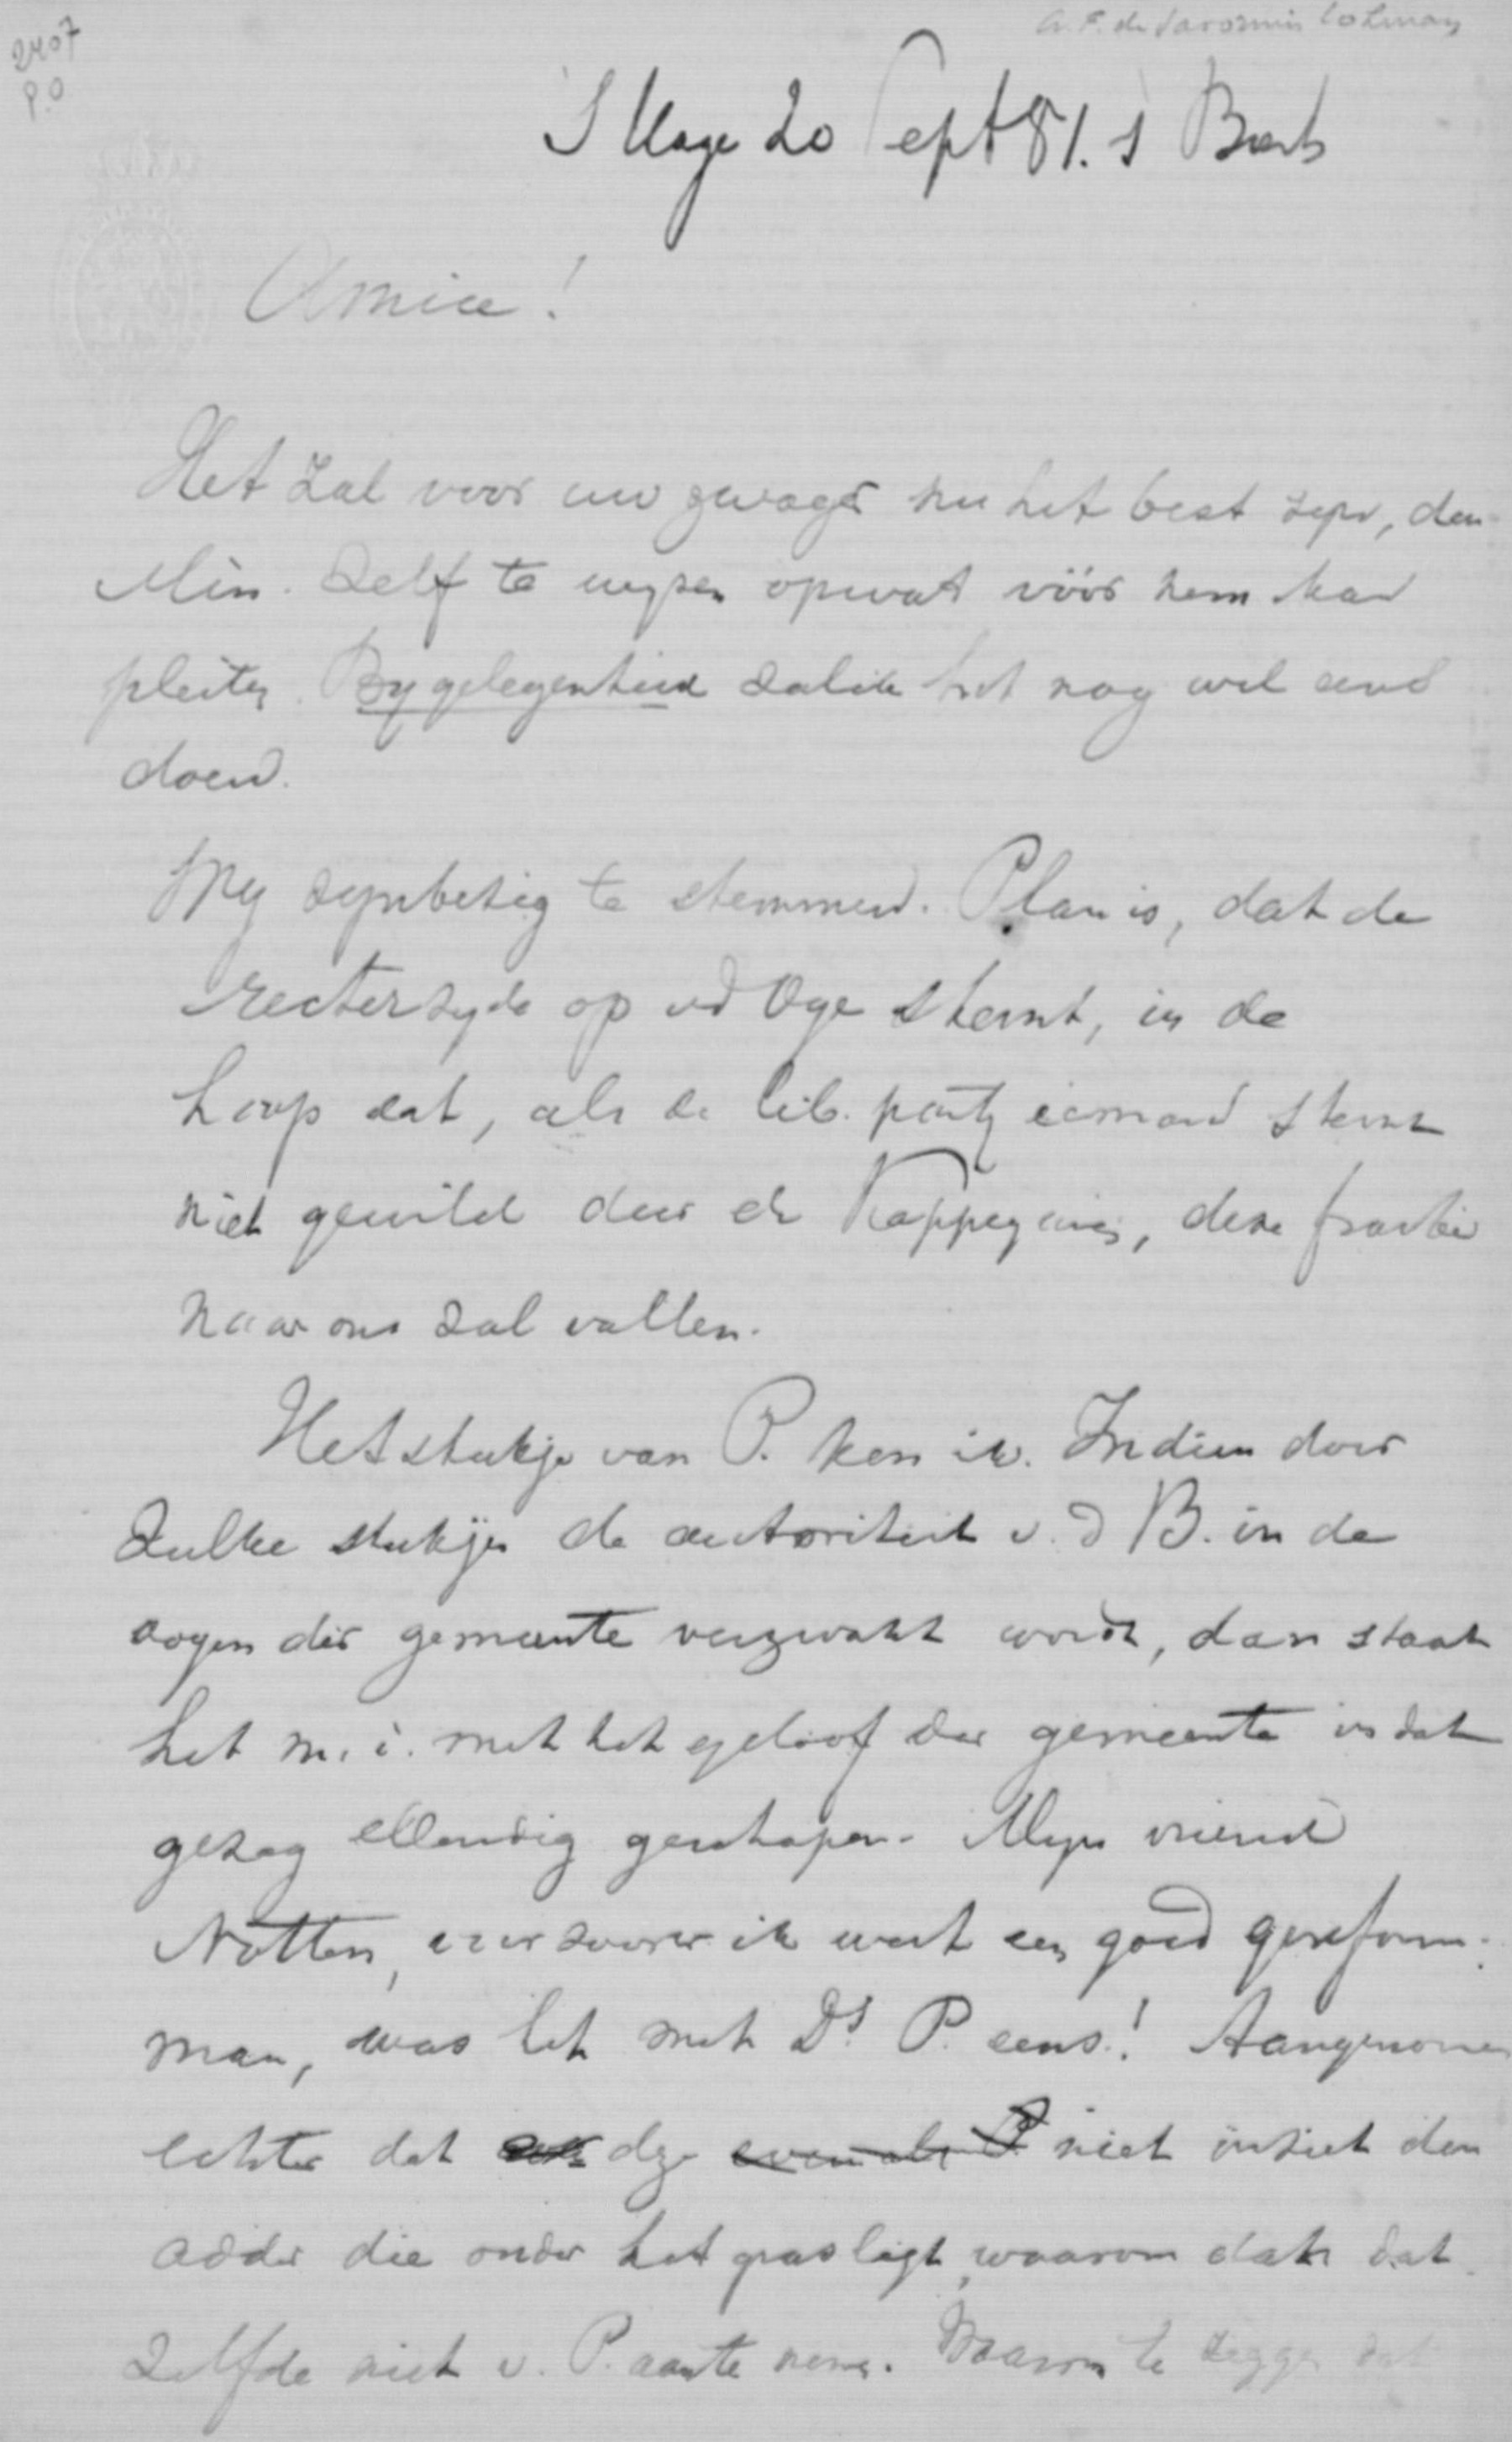 2407
P.O
A.F. de Savornin Lohman
S Hage 20 Sept 81.
Amice!
Het zal voor uw zwager nu het best zyn, den
Min. zelf te wyzen op wat vóór hem kan
pleiten. By gelegenheid zal ik het nog wel eens
doen.
Wy zyn bezig te stemmen. Plan is, dat de
rechterzyde op vd stemt, in de
hoop dat, als de lib. party iemand stemt
niet gewild door de Kappeyne, deze fractie
naar ons zal vallen.
Het stukje van P. ken ik. Indien door
zulke stukjes de autoriteit v. d B. in de
oogen der gemeente verzwakt wordt, dan staat
het m. i. met het geloof der gemeente in dat
gezag ellendig geschapen. Myn vriend
Notten, voor zoover ik weet een goed gereform.
man, was het met Ds P. eens! Aangenomen
echter dat deze even als P. niet inziet den
adder die onder het gras ligt, waarom dan dat
zelfde niet v. P. aan te nemen. Waarom te zeggen dat